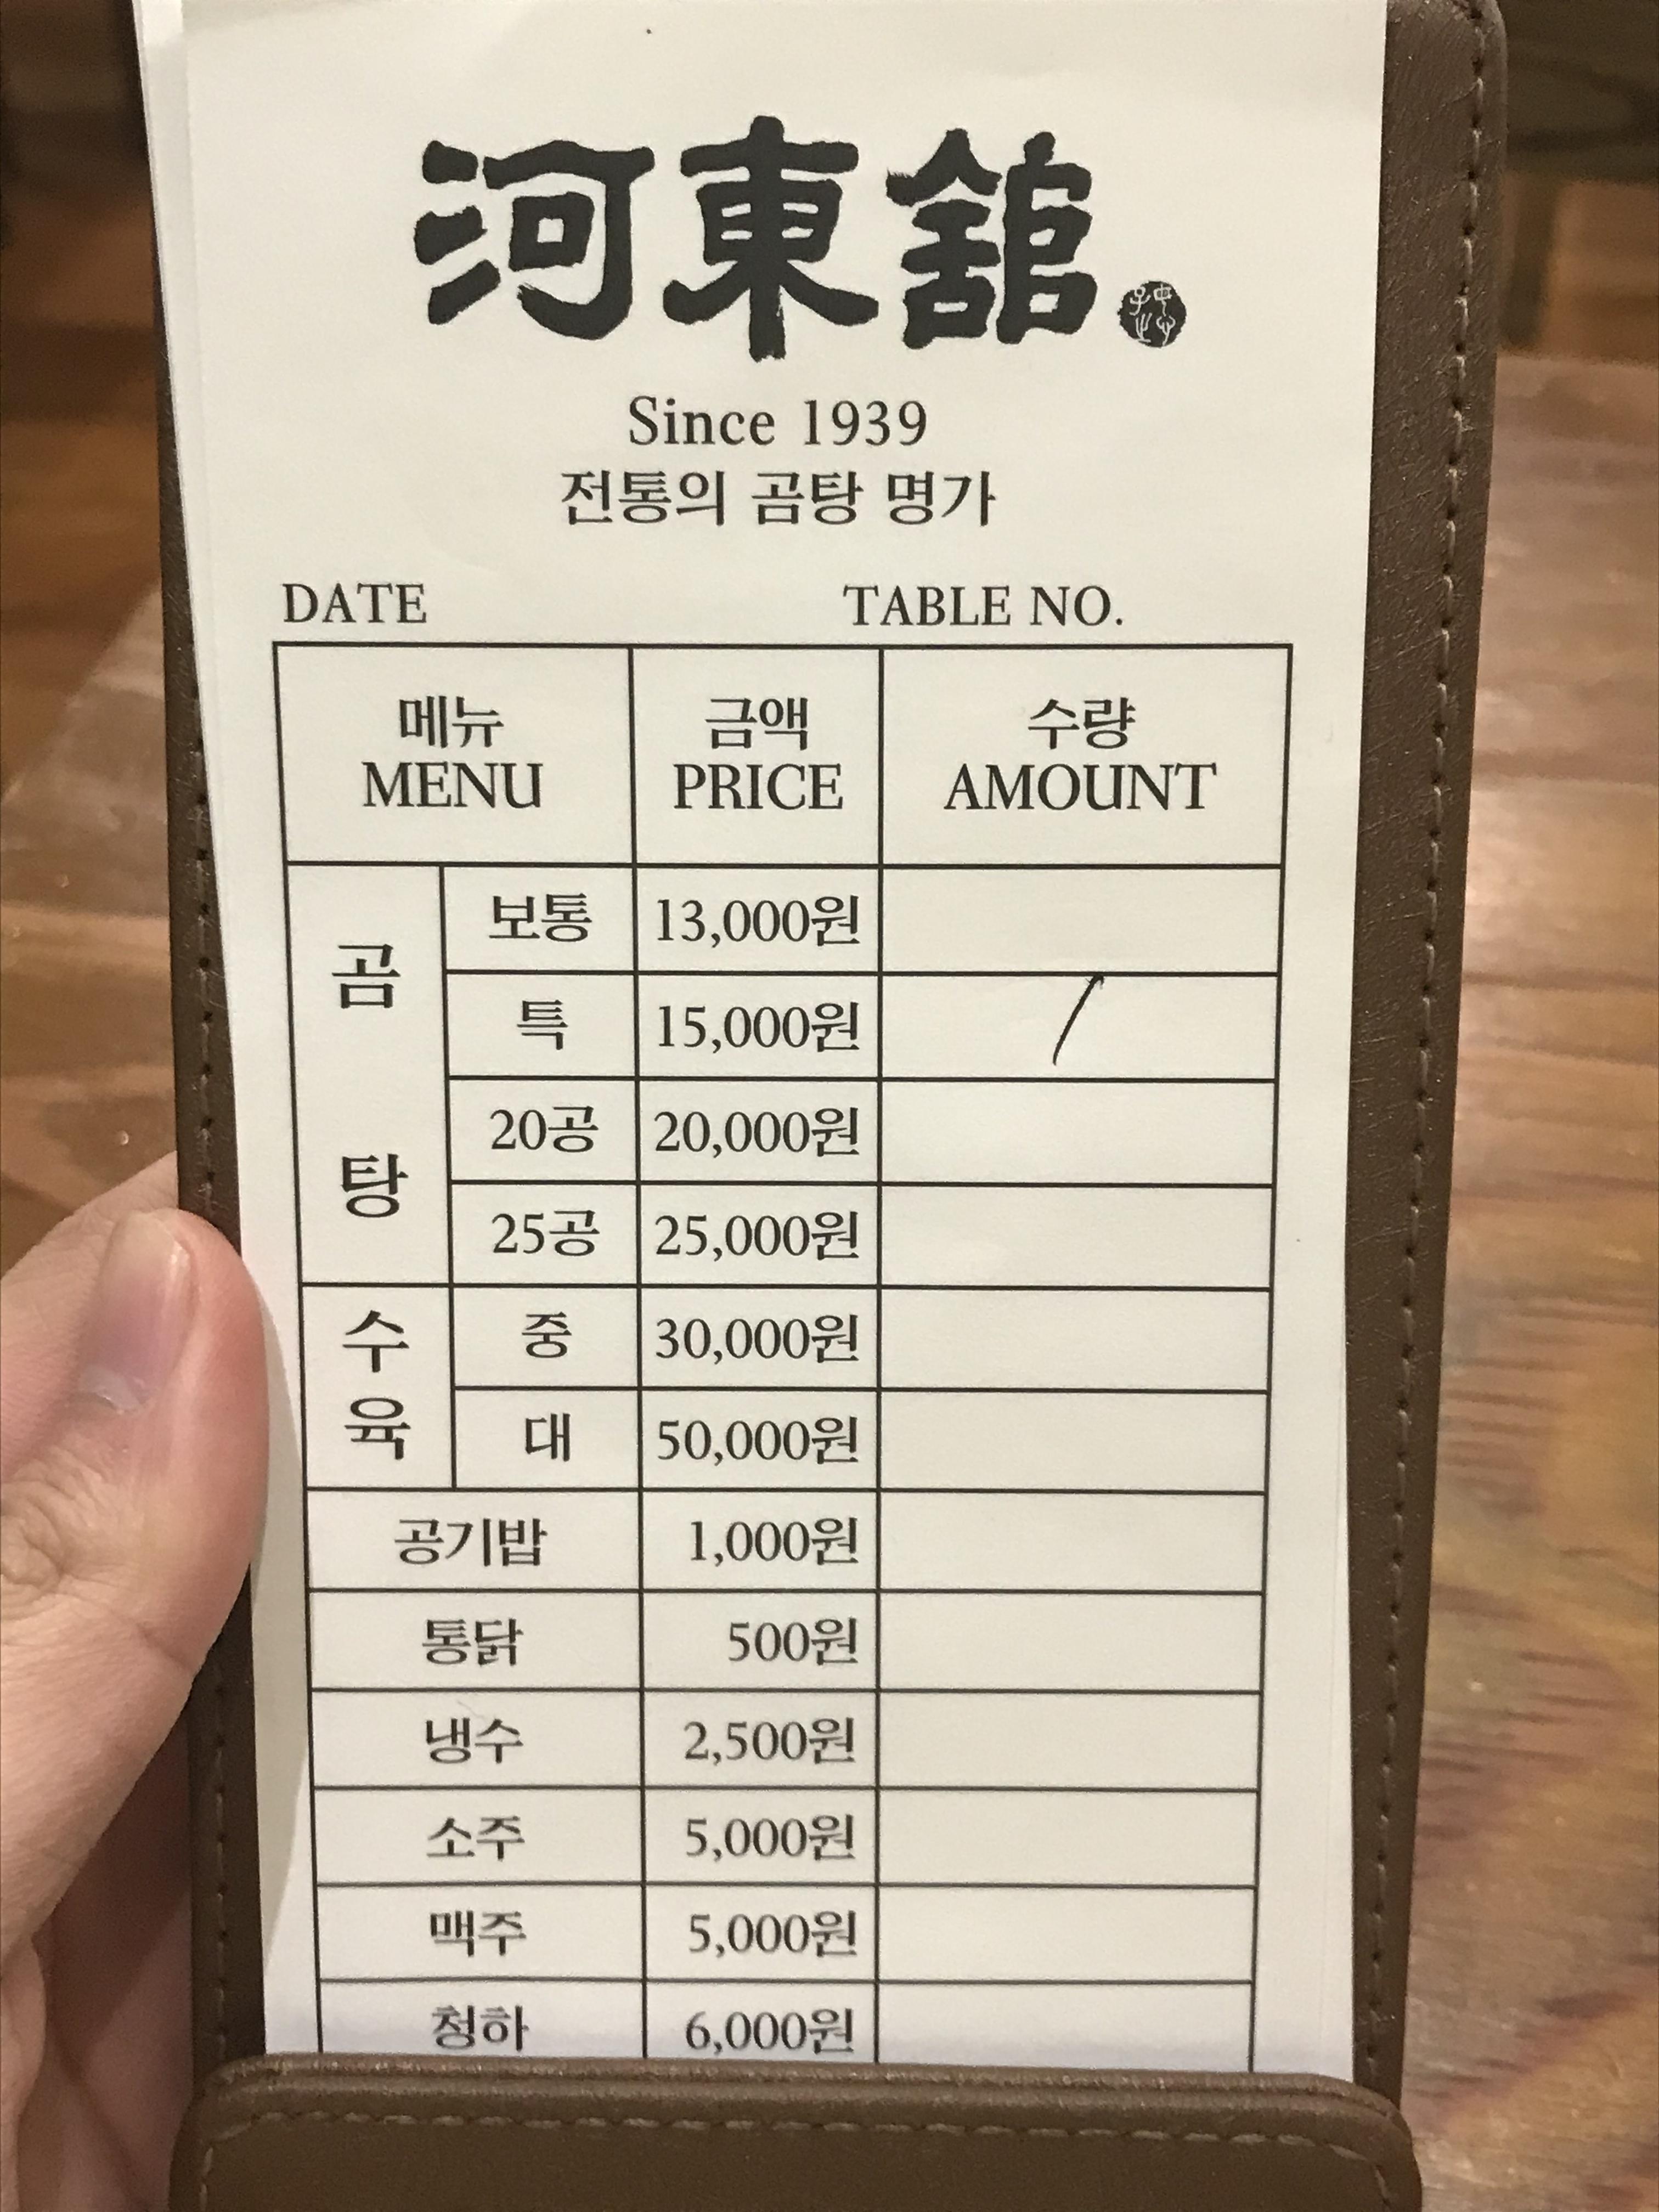 河東館
Since 1939
전통의 곰탕 명가
DATE TABLE NO.
메뉴 금액 수량
MENU PRICE AMOUNT
곰탕
보통 13,000원
특 15,000원 /
20공 20,000원
25공 25,000원
수육
중 30,000원
대 50,000원
공기밥 1,000원
통닭 500원
냉수 2,500원
소주 5,000원
맥주 5,000원
청하 6,000원